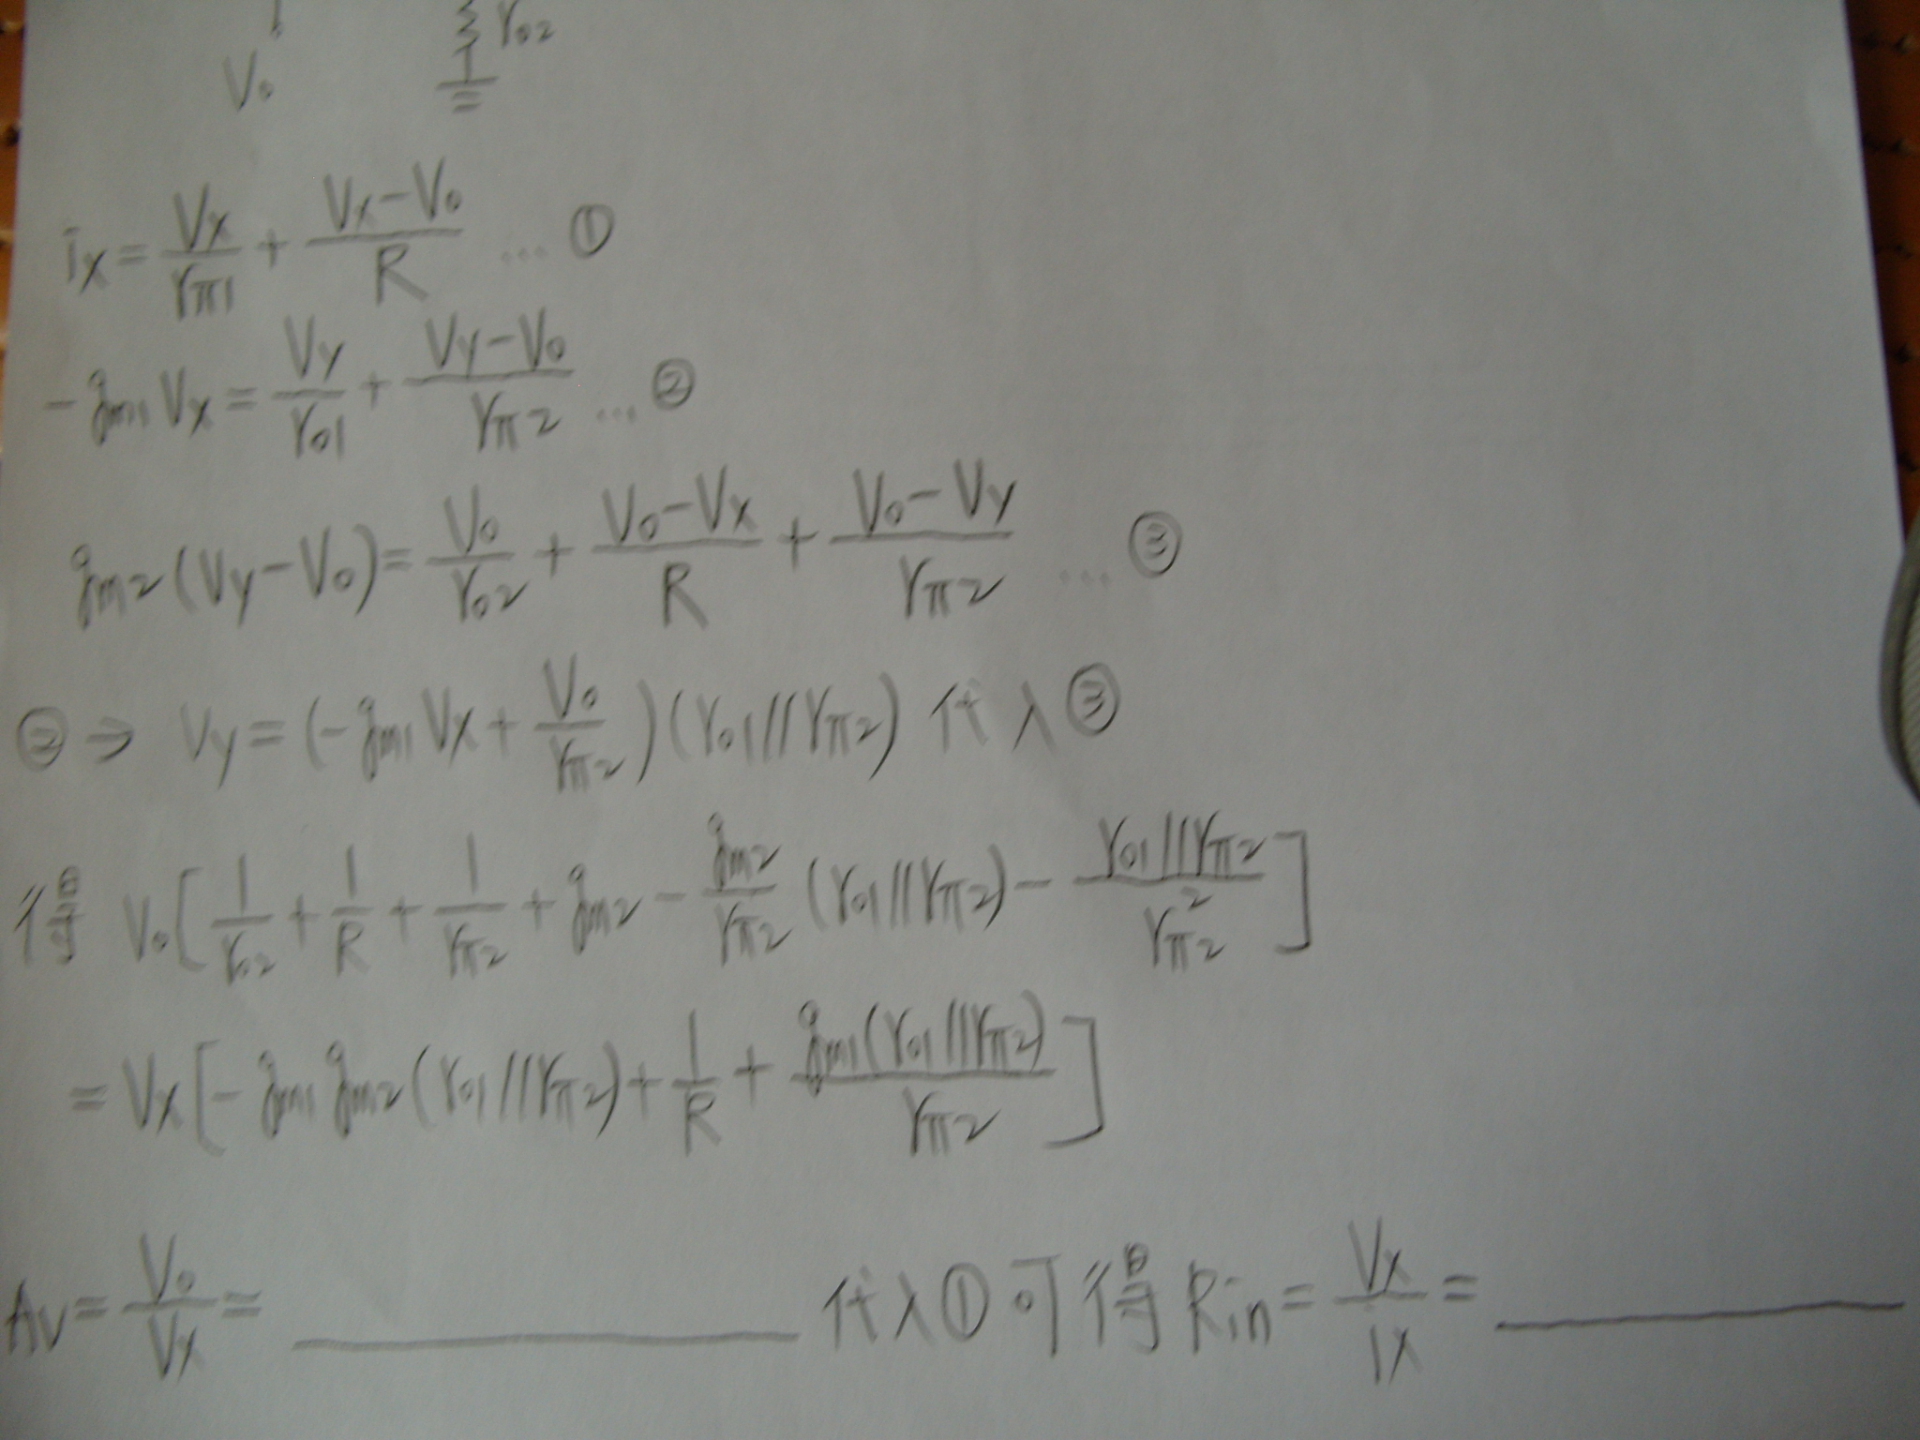 Vo rO2
ix = Vx/rπ1 + (Vx-Vo)/R ... ①
-gm1 Vx = Vy/rO1 + (Vy-Vo)/rπ2 ... ②
gm2(Vy-Vo) = Vo/rO2 + (Vo-Vx)/R + (Vo-Vy)/rπ2 ... ③
② ⇒ Vy = (-gm1 Vx + Vo/rπ2)(rO1//rπ2) 代入③
得 Vo[1/rO2 + 1/R + 1/rπ2 + gm2 - gm2/rπ2 (rO1//rπ2) - (rO1//rπ2)/rπ2²]
= Vx[-gm1 gm2 (rO1//rπ2) + 1/R + gm1(rO1//rπ2)/rπ2]
Av = Vo/Vx = ________ 代入①可得 Rin = Vx/ix = ________